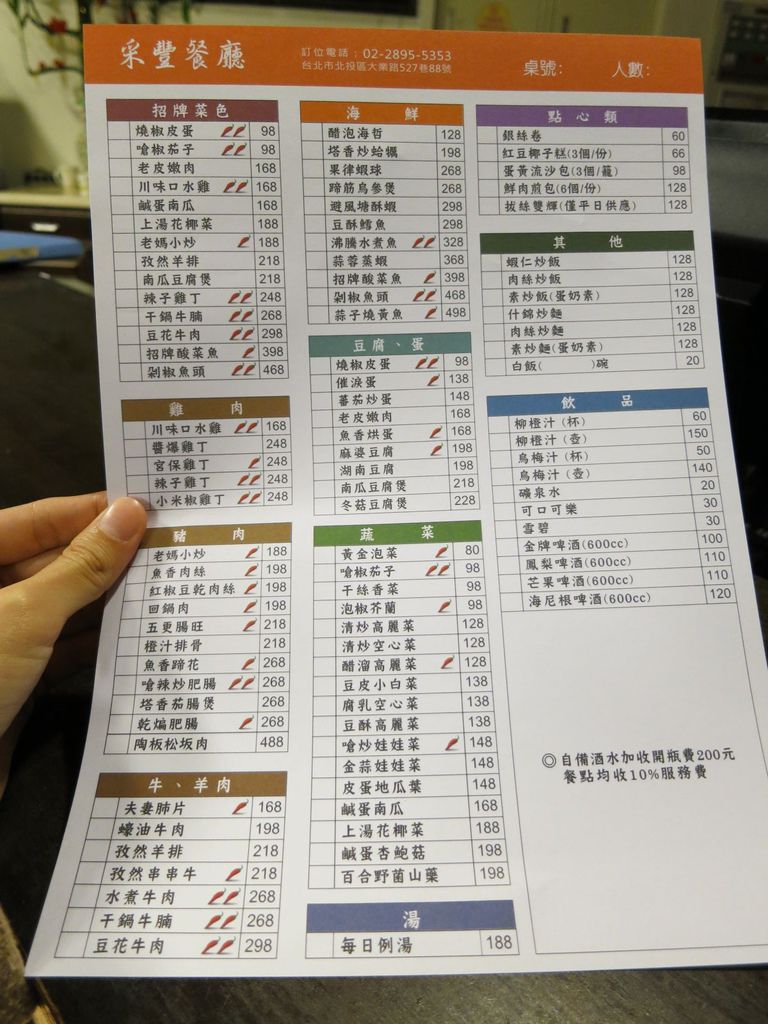 采豐餐廳
訂位電話：02-2895-5353
台北市北投區大業路527巷88號
桌號：
人數：
招牌菜色
燒椒皮蛋 98
嗆椒茄子 98
老皮嫩肉 168
川味口水雞 168
鹹蛋南瓜 168
上湯花椰菜 188
老媽小炒 188
孜然羊排 218
南瓜豆腐煲 218
辣子雞丁 248
干鍋牛腩 268
豆花牛肉 298
招牌酸菜魚 398
剁椒魚頭 468
雞肉
川味口水雞 168
醬爆雞丁 248
宮保雞丁 248
辣子雞丁 248
小米椒雞丁 248
豬肉
老媽小炒 188
魚香肉絲 198
紅椒豆乾肉絲 198
回鍋肉 198
五更腸旺 218
橙汁排骨 218
魚香蹄花 268
嗆辣炒肥腸 268
塔香茄腸煲 268
乾煸肥腸 268
陶板松坂肉 488
牛、羊肉
夫妻肺片 168
蠔油牛肉 198
孜然羊排 218
孜然串串牛 218
水煮牛肉 268
干鍋牛腩 268
豆花牛肉 298
海鮮
醋泡海哲 128
塔香炒蛤蠣 198
果律蝦球 268
蹄筋烏參煲 268
避風塘酥蝦 298
豆酥鱈魚 298
沸騰水煮魚 328
蒜蓉蒸蝦 368
招牌酸菜魚 398
剁椒魚頭 468
蒜子燒黃魚 498
豆腐、蛋
燒椒皮蛋 98
催淚蛋 138
蕃茄炒蛋 148
老皮嫩肉 168
魚香烘蛋 168
麻婆豆腐 198
湖南豆腐 198
南瓜豆腐煲 218
冬菇豆腐煲 228
蔬菜
黃金泡菜 80
嗆椒茄子 98
干絲香菜 98
泡椒芥蘭 98
清炒高麗菜 128
清炒空心菜 128
醋溜高麗菜 128
豆皮小白菜 138
腐乳空心菜 138
豆酥高麗菜 138
嗆炒娃娃菜 148
金蒜娃娃菜 148
皮蛋地瓜葉 148
鹹蛋南瓜 168
上湯花椰菜 188
鹹蛋杏鮑菇 198
百合野菌山藥 198
湯
每日例湯 188
點心類
銀絲卷 60
紅豆椰子糕(3個/份) 66
蛋黃流沙包(3個/籠) 98
鮮肉煎包(6個/份) 128
拔絲雙輝(僅平日供應) 128
其他
蝦仁炒飯 128
肉絲炒飯 128
素炒飯(蛋奶素) 128
什錦炒麵 128
肉絲炒麵 128
素炒麵(蛋奶素) 128
白飯( )碗 20
飲品
柳橙汁（杯） 60
柳橙汁（壺） 150
烏梅汁（杯） 50
烏梅汁（壺） 140
礦泉水 20
可口可樂 30
雪碧 30
金牌啤酒(600cc) 100
鳳梨啤酒(600cc) 110
芒果啤酒(600cc) 110
海尼根啤酒(600cc) 120
◎自備酒水加收開瓶費200元
餐點均收10%服務費